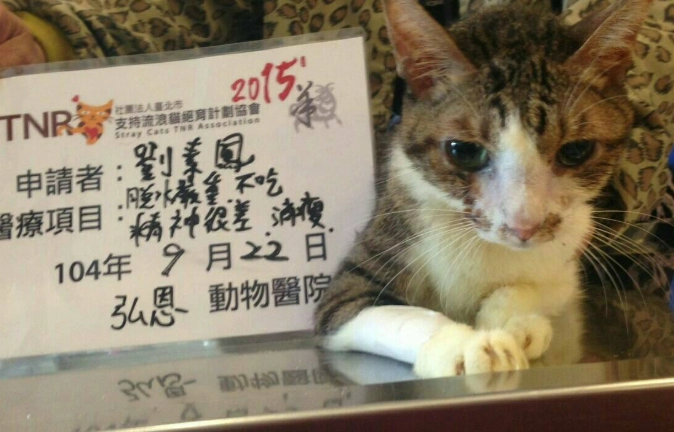 2015
羊
TNR
社團法人臺北市
支持流浪貓絕育計劃協會
Stray Cats TNR Association
申請者：劉素鳳
醫療項目：脫水嚴重.不吃
精神很差.消瘦
104年 9 月 22 日
弘恩 動物醫院